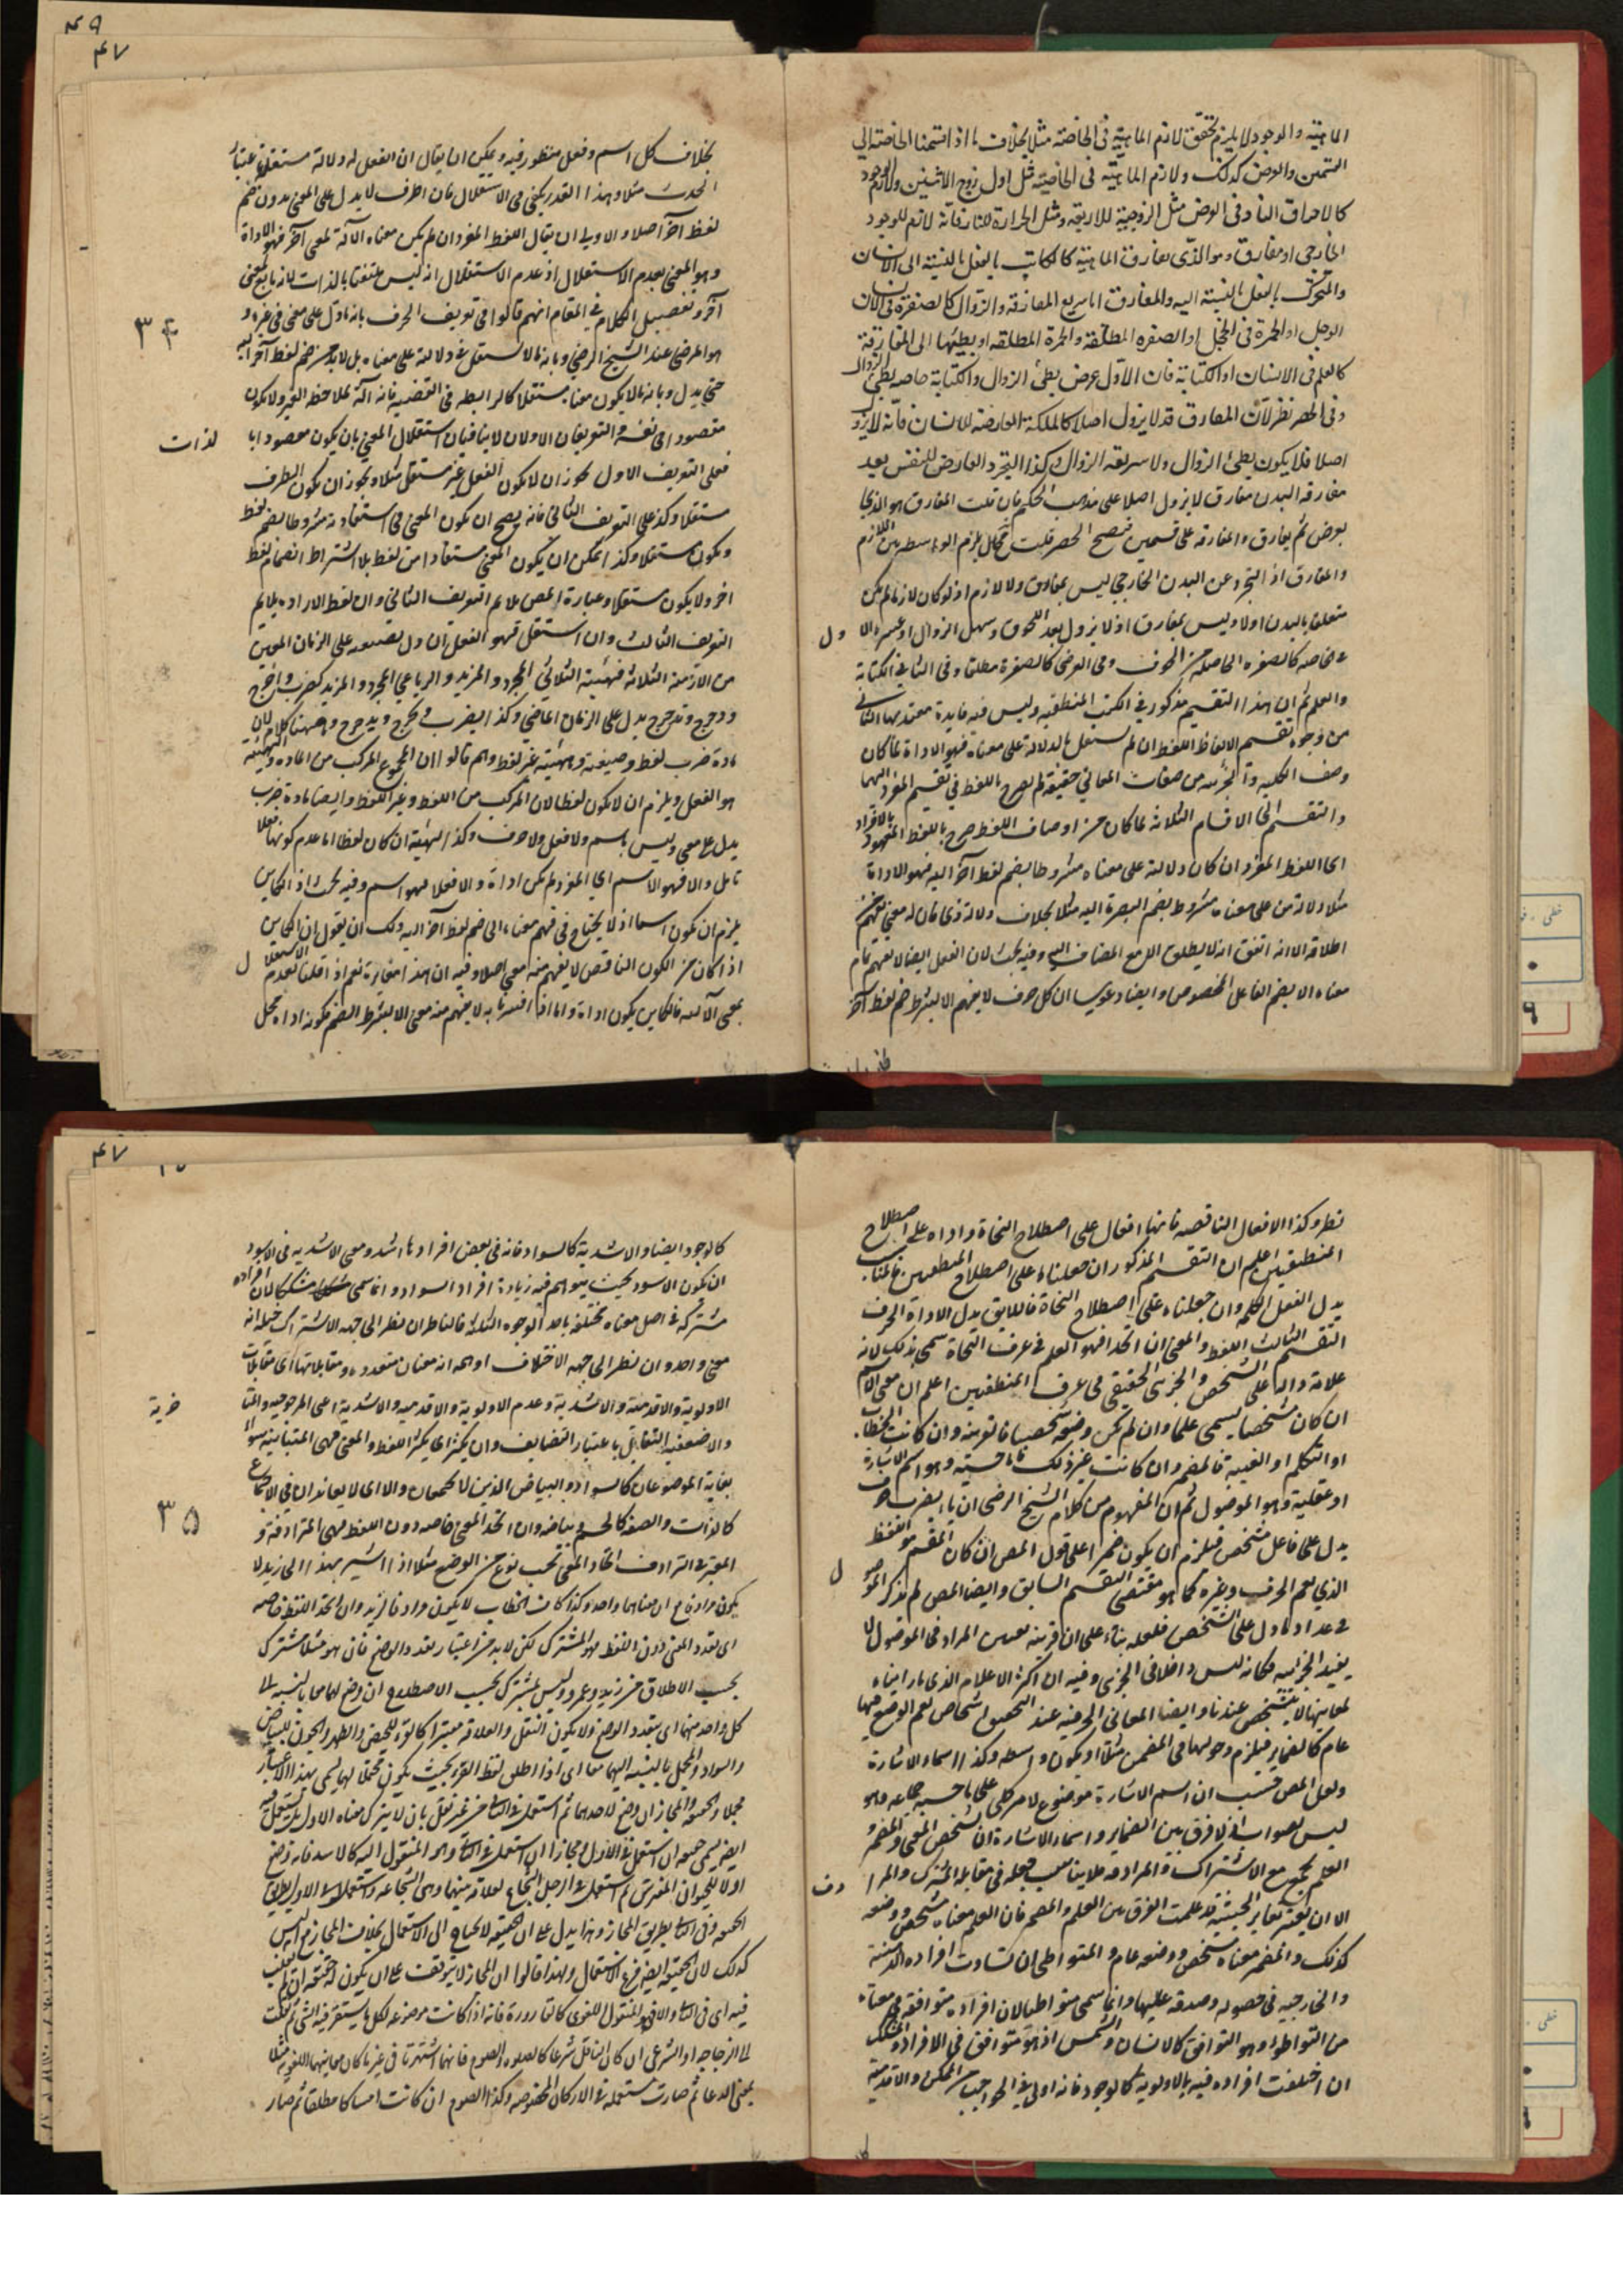 الماهية والوجود لا يلزم تحقق لازم الماهية في الخاصة مثلا بخلاف ما اذا قسمنا الخاصة الى
القسمين والعرض كذلك ولازم الماهية في الخاصة مثل اول زوج الاثنين ولازم الوجود
كالاحراق النار وفي العرض مثل الزوجية للاربعة ومثل الحرارة للنار فانه لازم للوجود
الخارجي او مفارق وهو الذي يفارق الماهية كالكاتب بالفعل بالنسبة الى الانسان
والمتحرك بالفعل بالنسبة اليه والمفارق اما سريع المفارقة والزوال كالصفرة في الان
الوجل او الحمرة في الخجل او الصفرة المطلقة والحمرة المطلقة او بطيئها الى المفارقة
كالعلم في الانسان او الكتابة فان الاول عرض بطئ الزوال والكتابة خاصة بطئ الزوال
وفي الحصر نظر لان المفارق قد لا يزول اصلا كالملكة العارضة للانسان فانه لا يزول
اصلا فلا يكون بطئ الزوال ولا سريعة الزوال وكذا التجرد العارض للنفس بعد
مفارقة البدن مفارق لا يزول اصلا على مذهب الحكيم فان قلت المفارق هو الذي
يعرض ثم يفارق والمفارقة على قسمين فيصح الحصر قلت فح يلزم الواسطة بين اللازم
والمفارق اذ التجرد عن البدن الخارجي ليس بمفارق ولا لازم اذ لو كان لازما لم يكن
متعلق بالبدن اولا وليس بمفارق اذ لا يزول بعد اللحوق وسهل الزوال او عسره الا ول
في خاصه كالصفره الحاصلة من الخوف وفي العرض كالصفرة مطلقا وفي الثاني الكتابة
والعلم ثم ان هذا التقسيم مذكور في الكتب المنطقيه وليس فيه فايدة معتد بها الثاني
من وجوه تقسيم الالفاظ اللفظ ان لم يستقل بالدلالة على معناه فهو الاداة لما كان
وصف الكلية والجزئيه من صفات المعاني حقيقة لم يصرح باللفظ في تقسيم المفرد اليهما
والتقسيم الى الاقسام الثلاثة لما كان من اوصاف اللفظ صرح باللفظ المتعود بالافراد
اى اللفظ المفرد ان كان دلالته على معناه مشروطا بضم لفظ آخر اليه فهو الاداة
مثلا دلالة من على معناه مشروط بضم البصرة اليه مثلا بخلاف دلالة ذى فان له معنى يفهم من
اطلاقه الا انه اتفق انه لا يطلق الا مع المضاف اليه وفيه بحث لان الفعل ايضا لا يفهم تمام
معناه الا بضم الفاعل المخصوص وايضا دعوى ان كل حرف لا يفهم الا بشرط ضم لفظ آخر
۴۹
۴۷
بخلاف كل اسم وفعل منظور فيه ويمكن ان يقال ان الفعل له دلالة مستقلة باعتبار
الحدث مثلا وهذا القدر يكفى في الاستقلال فان الحرف لا يدل على المعنى بدون ضم
لفظ آخر اصلا والاولى ان يقال اللفظ المفرد ان لم يكن معناه الا آلة لمعنى آخر فهو الاداة
وهو المعنى بعدم الاستقلال اذ عدم الاستقلال انه ليس ملتفتا بالذات لانه تابع لمعنى
آخر وتفصيل الكلام في المقام انهم قالوا في تعريف الحرف بانه ما دل على معنى في غيره و
هو المرضى عند الشيخ الرضى وبانه ما لا يستقل في دلالته على معناه بل لا بد من ضم لفظ آخر اليه
حتى يدل وبانه ما لا يكون معناه مستقلا كالرابطه في القضيه فانه آلة لملاحظة الغير ولا يكون
مقصودا في نفسه والتعريفان الاولان لا ينافيان استقلال المعنى بان يكون مقصودا با لذات
فعلى التعريف الاول يجوز ان لا يكون الفعل غير مستقل مثلا ويجوز ان يكون الحرف
مستقلا وكذا على التعريف الثاني فانه يصح ان يكون المعنى في استفادته مشروطا بضم لفظ
ويكون مستقلا وكذا يمكن ان يكون المعنى مستفادا من لفظ بلا اشتراط انضمام لفظ
اخر ولا يكون مستقلا وعبارة المص ملايم التعريف الثاني وان لفظ الاراده يلايم
التعريف الثالث وان استقل فهو الفعل ان دل بصيغته على الزمان المعين
من الازمنة الثلاثة فهيئة الثلاثي المجرد والمزيد والرباعي المجرد والمزيد كضرب واخرج
ودحرج وتدحرج يدل على الزمان الماضي وكذا يضرب ويخرج ويدحرج وههنا كلام لان
مادة ضرب لفظ وصيغته وهيئته غير لفظ وهم قالوا ان المجموع المركب من المادة والهيئة
هو الفعل ويلزم ان لا يكون لفظا لان المركب من اللفظ وغير اللفظ وايضا مادة ضرب
يدل على معنى وليس باسم ولا فعل ولا حرف وكذا الهيئة ان كان لفظا اما عدم كونها فعلا
تامل والا فهو الاسم اي المفرد لم يكن اداة ولا فعلا فهو اسم وفيه بحث اذ الكاين
يلزم ان يكون اسما اذ لا يحتاج في فهم معناه الى ضم لفظ آخر اليه ولك ان يقول ان الكاين
اذا كان من الكون الناقص لا يفهم منه معنى اصلا وفيه ان هذا مغايرة نعم اذا قلنا بعدم الاستقلال
بمعنى الآلية فالكاين يكون اداة واما اذا افسرنا به لا يفهم منه معنى الا بشرط الضم فكونه اداة محل
۳۴
نظر وكذا الافعال الناقصه فانها افعال على اصطلاح النحاة واداه على اصطلاح
المنطقيين اعلم ان التقسيم المذكور ان حملناه على اصطلاح المنطقيين فالمناسب
بدل الفعل الكلمه وان حملناه على اصطلاح النحاة فاللايق بدل الاداة الحرف
التقسيم الثالث اللفظ والمعنى ان اتحدا فهو العلم في عرف النحاة سمى بذلك لانه
علامة دالة على الشخص والجزئى الحقيقي في عرف المنطقيين اعلم ان معنى الاسم
ان كان شخصا يسمى علما وان لم يكن وضعه شخصيا فالقرينه وان كانت الخطاب
او التكلم او الغيبة فالمضمر وان كانت غير ذلك فاما حسية وهو اسم الاشارة
او عقلية وهو الموصول ثم ان المفهوم من كلام الشيخ الرضى ان ياء يضرب حرف
يدل على فاعل مشخص فيلزم ان يكون مضمرا على قول المص ان كان المقسم هو اللفظ
الذي يعم الحرف وغيره كما هو مقتضى التقسيم السابق وايضا المص لم يذكر الموصول
في عداد ما دل على الشخص فلعله بناء على ان قرينه تعيين المراد في الموصول لا
يفيد الجزئيه فكانه ليس داخلا في الجزئى وفيه ان اكثر الاعلام الذى ما راينا
لمعانيها لا يتشخص عندنا وايضا المعاني الحرفية عند المحققين اشخاص نعم الوضع فيها
عام كالضماير فيلزم دخولها في المضمر مثلا او يكون واسطه وكذا اسماء الاشارة
ولعل المص حسب ان اسم الاشارة موضوع لامر كلى على ما حسبه جماعه وهو
ليس بصواب اذ لا فرق بين الضماير واسماء الاشارة ان تشخص المعنى والمضمر و
العلم يجمع مع الاشتراك والمرادفه فلا يناسب جعله في مقابله المشترك والمرا دف
الا ان يعتبر تغاير الحيثية قد علمت الفرق بين العلم والمضمر فان العلم معناه مشخص ووضعه
كذلك والمضمر معناه مشخص ووضعه عام والمتواطى ان تساوت افراده الذهنية
والخارجيه في حصوله وصدقه عليها وانما سمى متواطيا لان افراده متوافقه في معناه
من التواطؤ وهو التوافق كالانسان والشمس اذ هو متوافق في الافراد والمشكك
ان اختلفت افراده فيه بالاولويه كالوجود فانه اولى في الواجب من الممكن والاقدمية
۴۷
كالوجود ايضا والاشدية كالسواد فانه في بعض افراد ما اشد ومعنى الاشديه في الاسود
ان يكون الاسود بحيث يتوهم فيه زيادة افراد السواد وانما سمى مشككا لان افراده
مشتركة في اصل معناه مختلفة باحد الوجوه الثلثة فالناظر ان نظر الى جهة الاشتراك خيله انه
معنى واحد وان نظر الى جهه الاختلاف اوهمه انه معان متعدده ومقابلاتها اى مقابلات
الاولوية والاقدمية والاشدية وعدم الاولوية والاقدميه والاشدية اعنى المرجوحيه والمتا خرية
والاضعفيه التقابل باعتبار التضايف وان يكثرا اى يكثر اللفظ والمعنى فهى المتباينة سواء
بغاية الموضوعان كالسواد والبياض الذين لا يجتمعان والا اى لا يعاندان في الاجتماع
كالذات والصفه كالجسم وبياضه وان اتحد المعنى خاصه دون اللفظ فهى المترادفة و
المعتبر في الترادف اتحاد المعنى تحت نوع من الوضع مثلا اذا اشير بهذا الى زيد لا
يكون مرادفا مع ان معناهما واحد وكذا كاف الخطاب لا يكون مرادفا لزيد وان اتحد اللفظ خاصه
اى بتعدد المعنى دون اللفظ فهو المشترك لكن لا بد من اعتبار تعدد الوضع فان هو مثلا مشترك
بحسب الاطلاق من زيد وعمرو وليس بمشترك بحسب الاصطلاح ان وضع لهما معا بالنسبة الى
كل واحد منهما اى بتعدد الوضع ولا يكون النقل والعلاقه معتبرا كالقرء للحيض والطهر والجون للبياض
والسواد والمجمل بالنسبه اليهما معا اى اذا اطلق لفظ القرء بحيث يكون محتملا لهما يسمى بهذا الاعتبار
مجملا والحقيقه والمجاز ان وضع لاحدهما ثم استعمل في الثانى من غير نقل بان لا يترك معناه الاول بل يستعمل فيه
ايضا يسمى حقيقه ان استعمل في الاول ومجازا ان استعمل في الثاني وهو المنقول اليه كالاسد فانه وضع
اولا للحيوان المفترس ثم استعمل في الرجل الشجاع لعلاقه بينهما وهى الشجاعه واستعماله في الاول بطريق
الحقيقه وفي الثاني بطريق المجاز وهذا يدل على ان الحقيقه لا يحتاج الى الاستعمال بخلاف المجاز مع انه ليس
كذلك لان الحقيقه ايضا فرع الاستعمال ولهذا قالوا ان المجاز لا يتوقف على ان يكون له حقيقه ان لم يغلب
فيه اى في الثاني والا فهو المنقول اللغوى كالقارورة فانه اذا كانت موضوعه لكل ما يستقر فيه الشئ ثم نقلت
الى الزجاجه او الشرعى ان كان الناقل شرعا كالصلوه والصوم فانهما اشتهرتا في غير ما كان معانيهما اللغويه مثلا
بمعنى الدعا ثم صارت مستعمله في الاركان المخصوصه وكذا الصوم ان كانت امساكا مطلقا ثم صار
۳۵